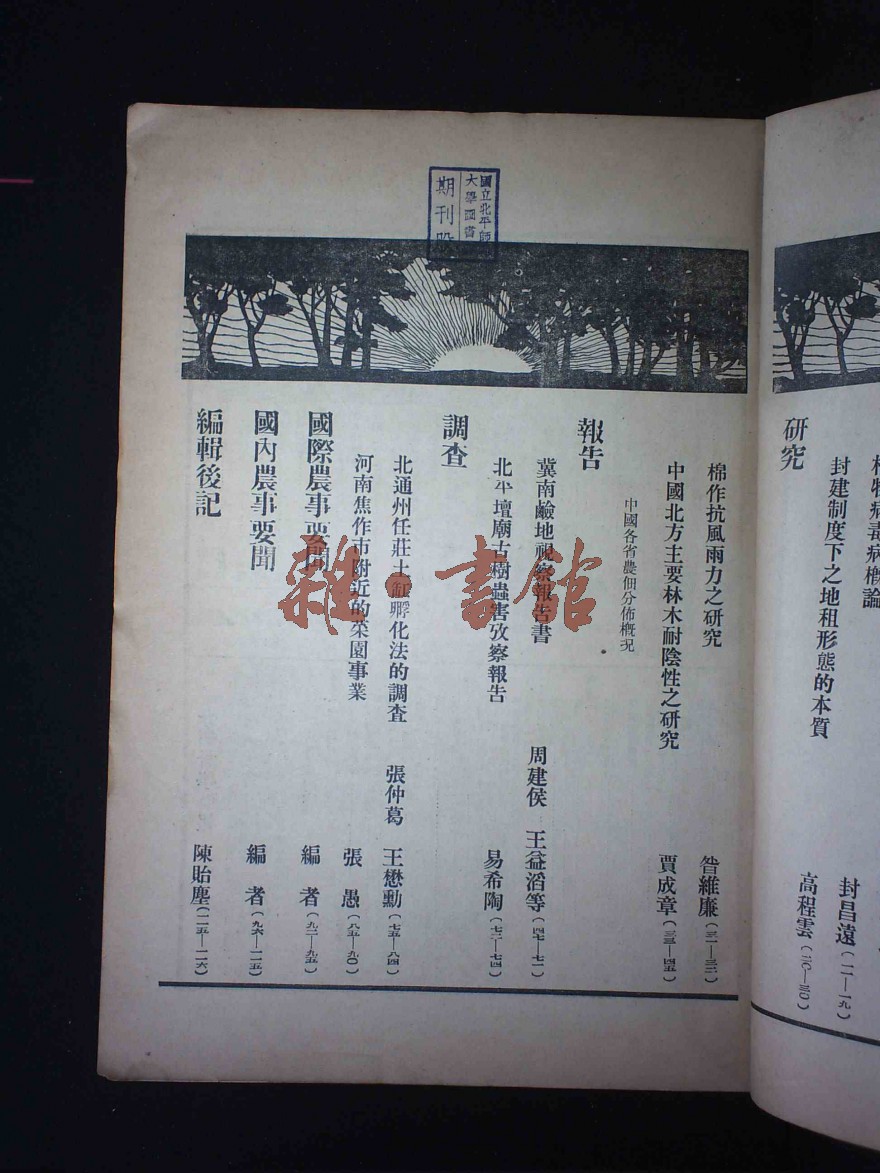 國立北平師
大學圖書
期刊股
研究
植物病毒病概論
封建制度下之地租形態的本質
封昌遠（一一—一九）
高程雲（二〇—三〇）
棉作抗風雨力之研究 昝維廉（三一—三二）
中國北方主要林木耐陰性之研究 賈成章（三三—四五）
中國各省農佃分佈概況
報告
冀南鹼地視察報告書 周建侯 王益滔等（四七—七一）
北平壇廟古樹蟲害攷察報告 易希陶（七二—七四）
調查
北通州任莊土缸孵化法的調查 張仲葛 王懋勳（七五—八四）
河南焦作市附近的菜園事業 張愚（八五—九〇）
國際農事要聞 編者（九二—九五）
國內農事要聞 編者（九六—一一五）
編輯後記 陳貽塵（一一五—一一六）
雜·書館